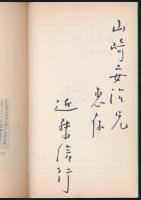 山崎安治兄
恵存
近藤信行